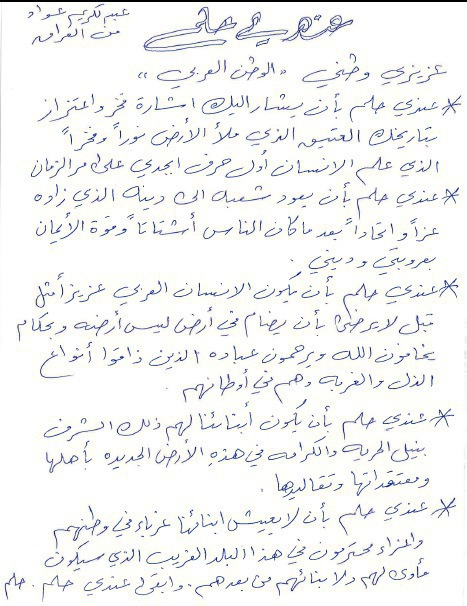 عبد الكريم عواد
من العراق
عندي حلم
عزيزي وطني "الوطن العربي"
* عندي حلم بأن يشار اليك اشارة فخر واعتزاز
بتاريخك العتيق الذي ملأ الأرض نوراً وفخراً
الذي علم الانسان أول حرف ابجدي على مر الزمان
* عندي حلم بأن يعود شعبه الى دينه الذي زاده
عزاً واتحاداً بعد ما كان الناس أشتاتاً وقوة الأيمان
بعروبتي وديني .
* عندي حلم بأن يكون الانسان العربي عزيز أمثل
قبل لا يرضى بأن يضام في أرض ليس أرضه وبحكام
يخافون الله ويرحمون عباده الذين ذاقوا أنواع
الذل والغربه وهم في أوطانهم .
* عندي حلم بأن يكون أبنائنا لهم ذلك الشرف
بنيل الحريه والكرامه في هذه الأرض الجديده بأهلها
ومعتقداتها وتقاليدها .
* عندي حلم بأن لا يعيش ابنائها غرباء في وطنهم
واعزاء محترمون في هذا البلد الغريب الذي سيكون
مأوى لهم ولابنائهم من بعدهم . وابقى عندي حلم . حلم